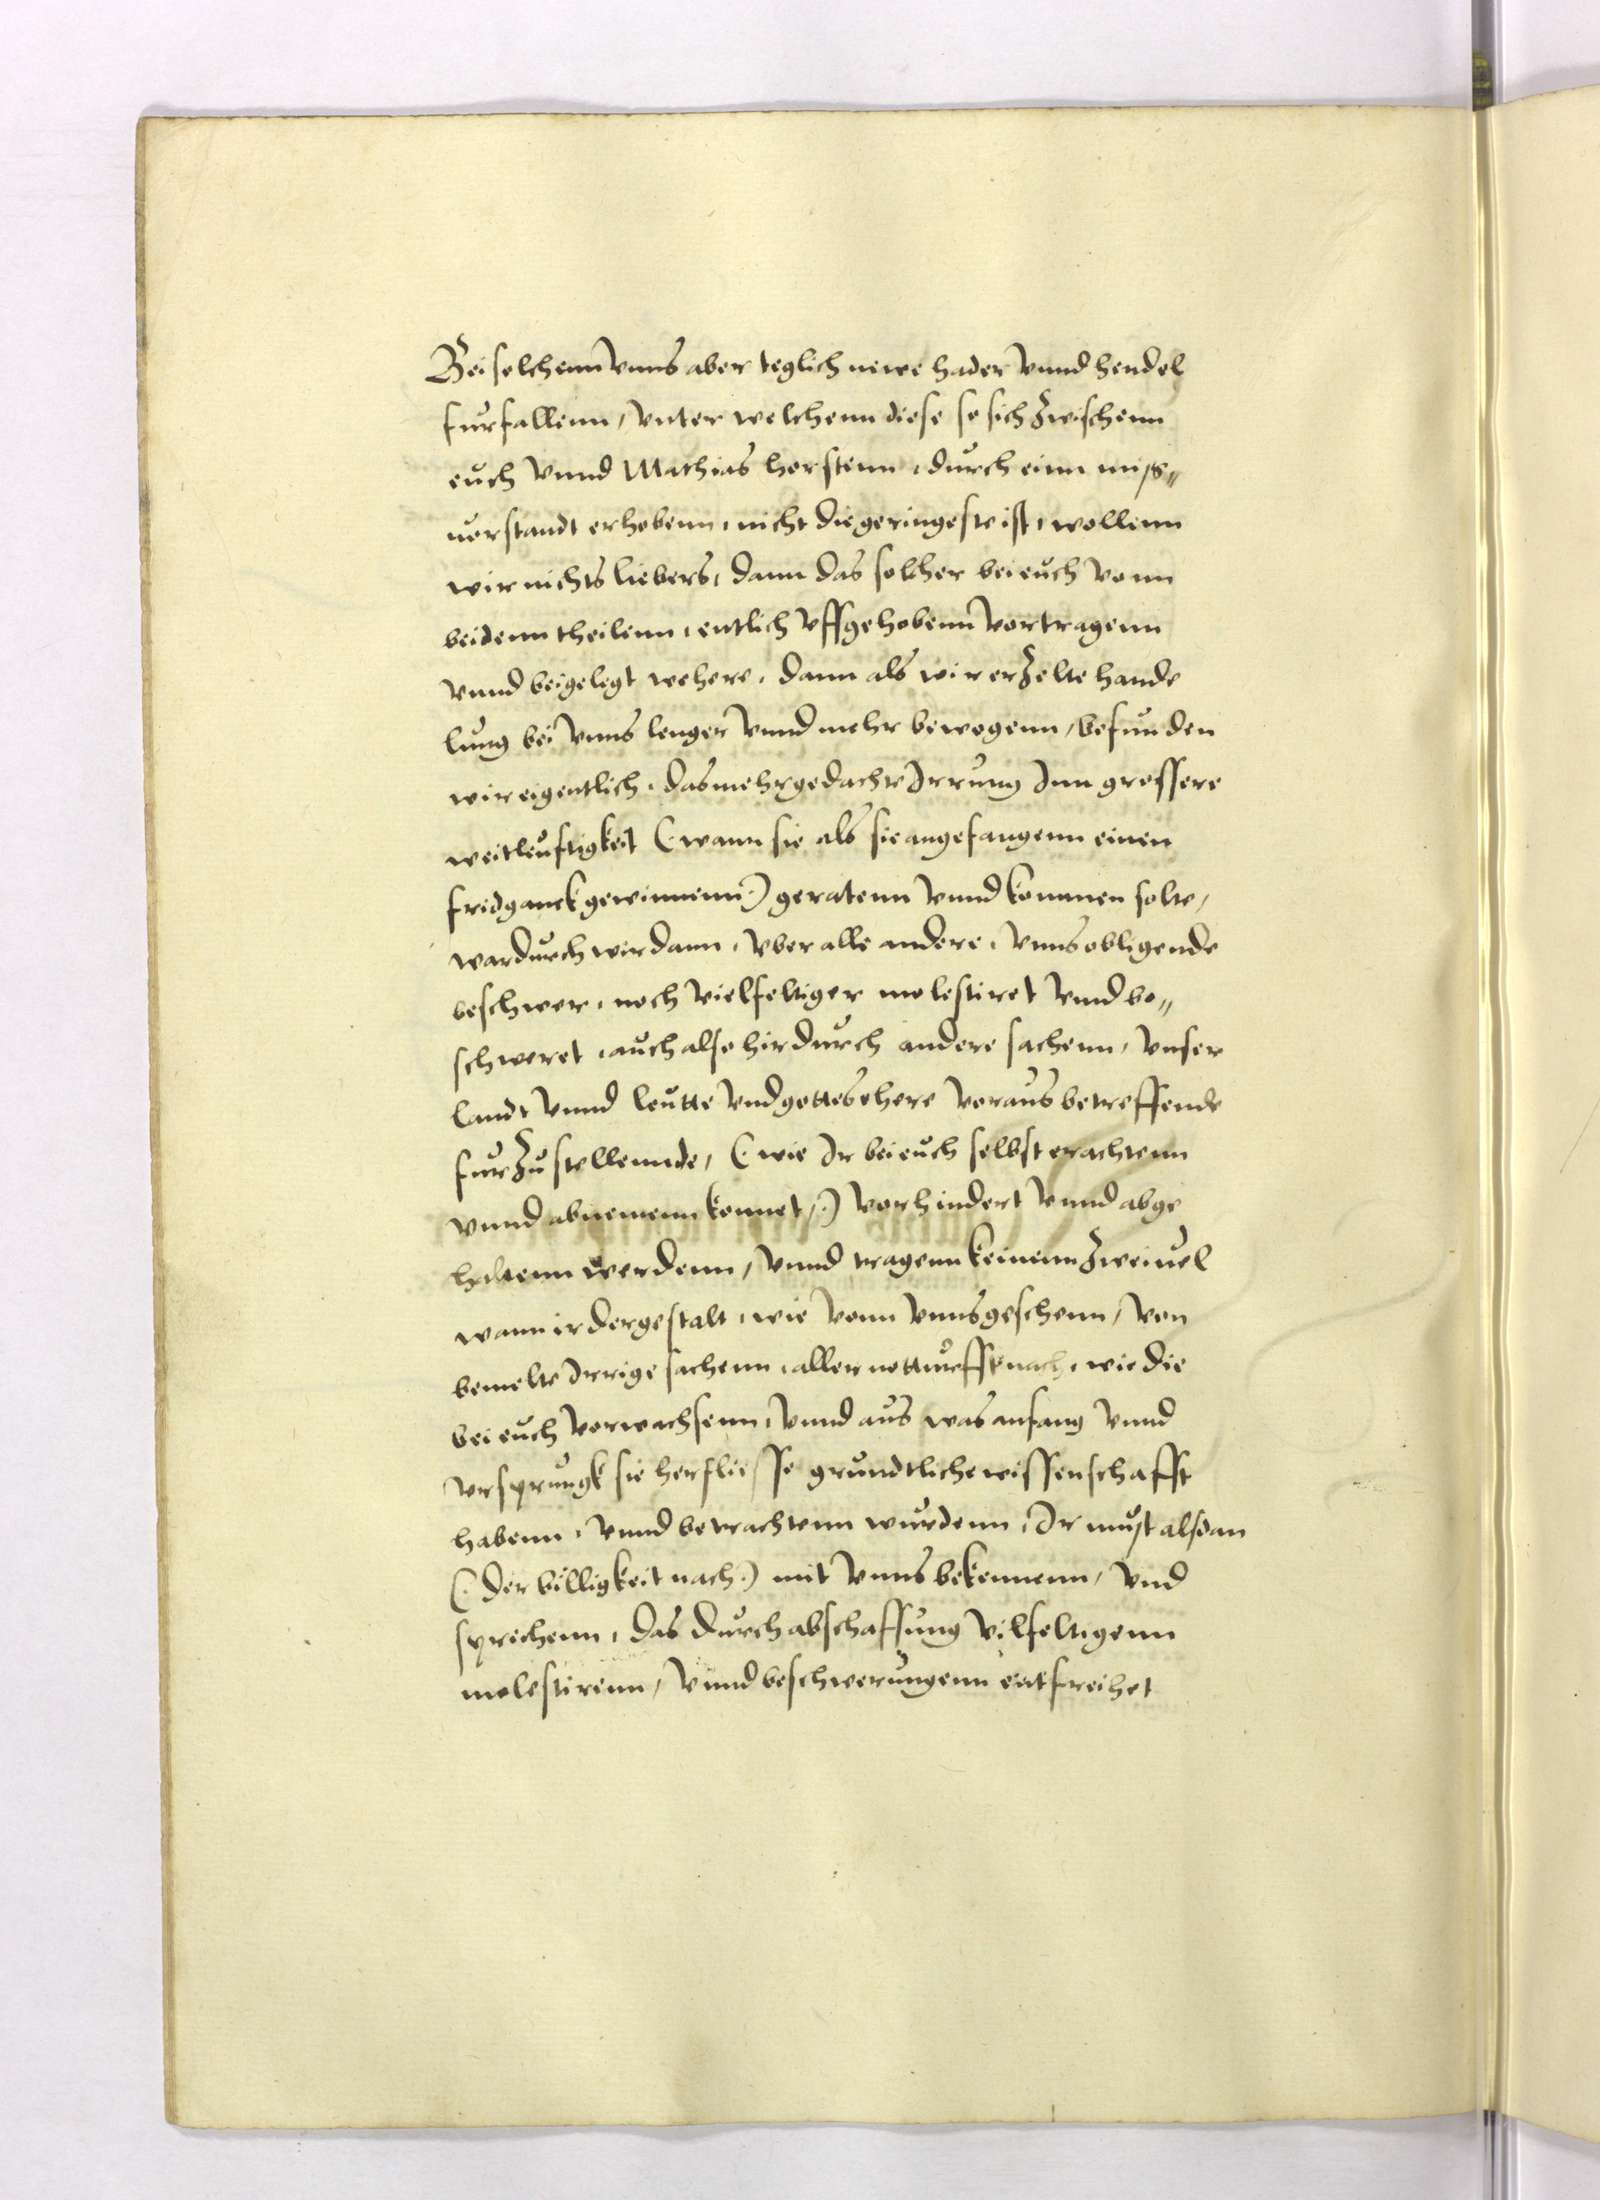 Bei solchenn Vnns aber teglich newe hader Vnnd hendel
furfallenn, Vnter welchenn diese so sich zwischenn
euch Vnnd Mathias horstenn, durch einn miß⸗
uorstandt erhobenn, nicht die geringeste ist, wollenn
wir nichts liebers, dann das solcher bei euch Vonn
beidenn theilenn, entlich Vffgehobenn Vortragenn
Vnnd beigelegt wehere, dann als wir erzelte hande
lung bei Vnns lenger Vnnd mehr bewogenn, befunden
wir eigentlich, das mehrgedachte Irrung Inn grossere
weitleuftigkeit (: wann sie als sie angefangenn einen
fridganck gewinnenn :) geratenn Vnnd kommen solte,
wardurch wir dann, Vber alle andere, Vnns obligende
beschwer, noch Vielfeltiger molestiret Vnnd be⸗
schweret, auch also hirdurch andere sachenn, Vnser
landt Vnnd leutte Vnd gottes ehere Voraus betreffende
furzustellennde, (: wie Ir bei euch selbst erachtenn
Vnnd abnemenn konnet, :) Vorhindert Vnnd abge
haltenn werdenn, Vnnd tragenn keinenn zweiuel
wann ir dergestalt, wie Vonn Vnns geschenn, Von
bemelte Irrige sachenn, aller notturfft nach, wie die
bei euch Vorwachsenn, Vnnd aus was anfang Vnnd
Vrsprungk sie herfliesse grundtliche wissenschafft
habenn, Vnnd betrachtenn wurdenn, Ir must alsdan
(: der billigkeit nach :) mit Vnns bekennenn, Vnd
sprechenn, das durch abschaffung Vilfeltigenn
molestirenn, Vnnd beschwerungenn entfreihet